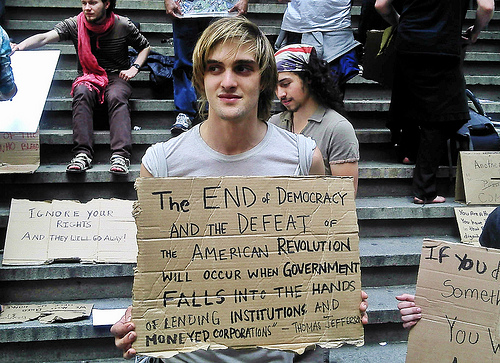 The END of DEMOCRACY
AND THE DEFEAT OF
THE AMERICAN REVOLUTION
WILL OCCUR WHEN GOVERNMENT
FALLS INTO THE HANDS
OF LENDING INSTITUTIONS AND
MONEYED CORPORATIONS" - THOMAS JEFFERSO
IGNORE YOUR
RIGHTS
AND THEY WILL GO AWAY!
IF YOU
Someth
You